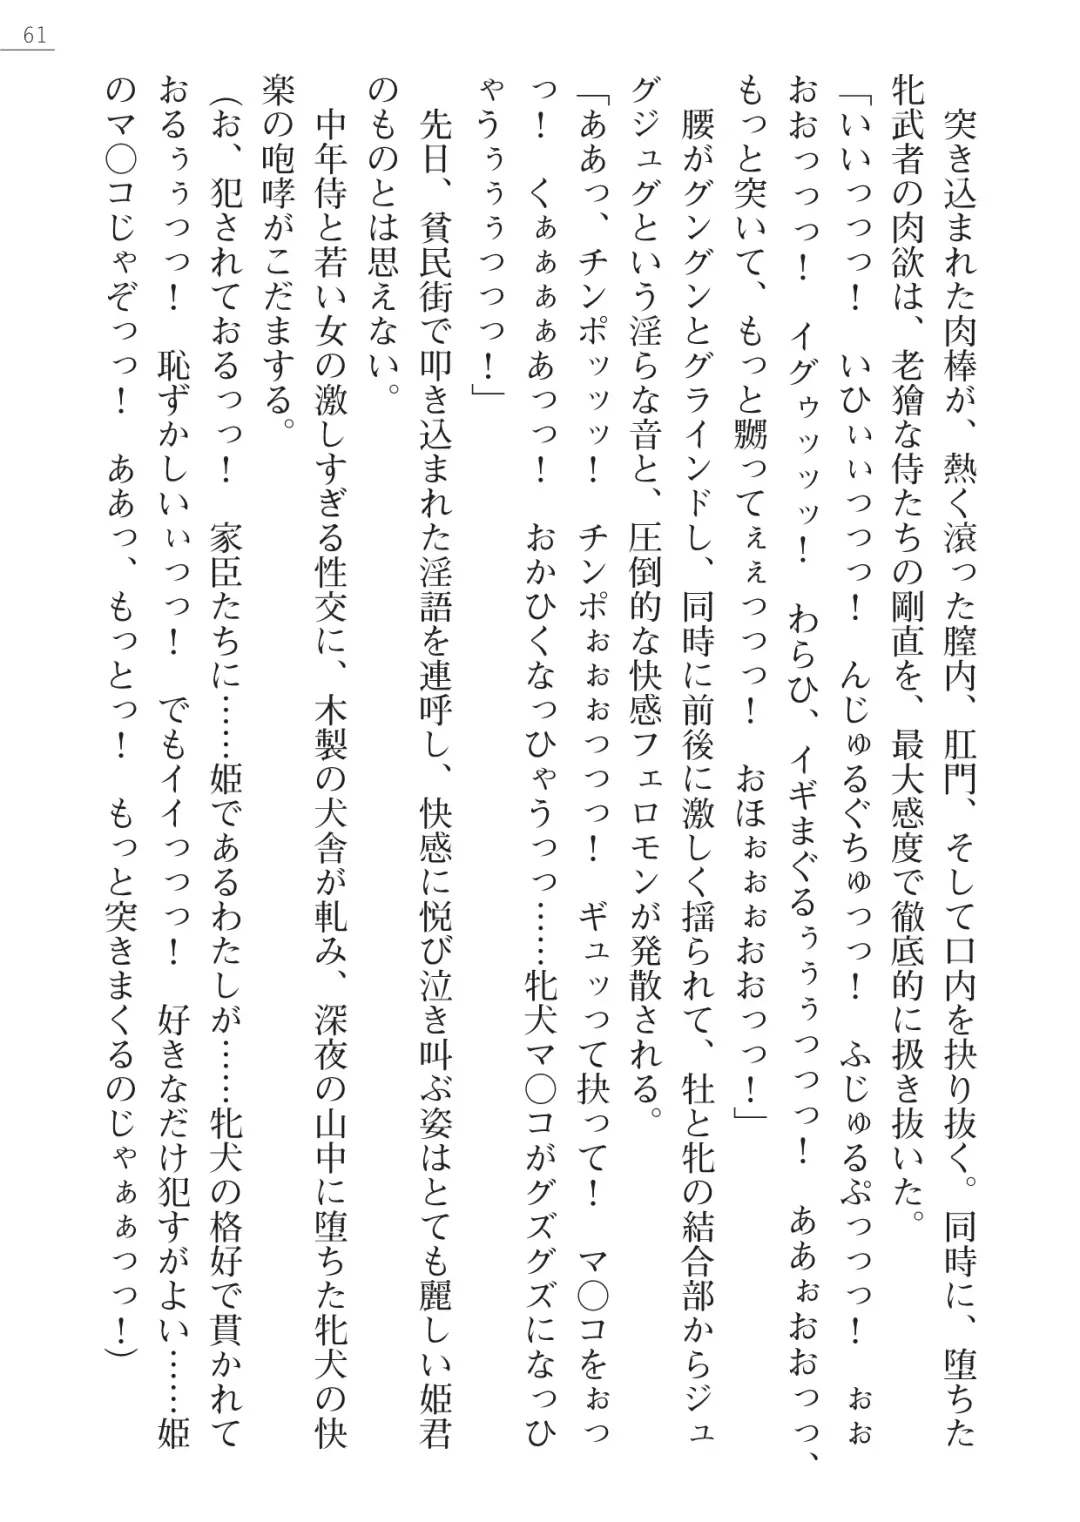 61
突き込まれた肉棒が、熱く滾った膣内、肛門、そして口内を抉り抜く。同時に、堕ちた
牝武者の肉欲は、老獪な侍たちの剛直を、最大感度で徹底的に扱き抜いた。
「いいっっっ！　いひぃぃっっっ！　んじゅるぐちゅっっ！　ふじゅるぷっっっ！　ぉぉ
おおっっっ！　イグゥッッッ！　わらひ、イギまぐるぅぅぅっっっ！　ああぉおおっっ、
もっと突いて、もっと嬲ってぇぇっっっ！　おほぉぉぉおおっっ！」
腰がグングンとグラインドし、同時に前後に激しく揺られて、牡と牝の結合部からジュ
グジュグという淫らな音と、圧倒的な快感フェロモンが発散される。
「ああっ、チンポッッッ！　チンポぉぉぉっっっ！　ギュッって抉って！　マ〇コをぉっ
っ！　くぁぁぁぁあっっ！　おかひくなっひゃうっっ……牝犬マ〇コがグズグズになっひ
ゃうぅぅぅっっっ！」
先日、貧民街で叩き込まれた淫語を連呼し、快感に悦び泣き叫ぶ姿はとても麗しい姫君
のものとは思えない。
中年侍と若い女の激しすぎる性交に、木製の犬舎が軋み、深夜の山中に堕ちた牝犬の快
楽の咆哮がこだまする。
（お、犯されておるっっ！　家臣たちに……姫であるわたしが……牝犬の格好で貫かれて
おるぅぅっっ！　恥ずかしいぃっっ！　でもイイっっっ！　好きなだけ犯すがよい……姫
のマ〇コじゃぞっっ！　ああっ、もっとっ！　もっと突きまくるのじゃぁぁっっ！）